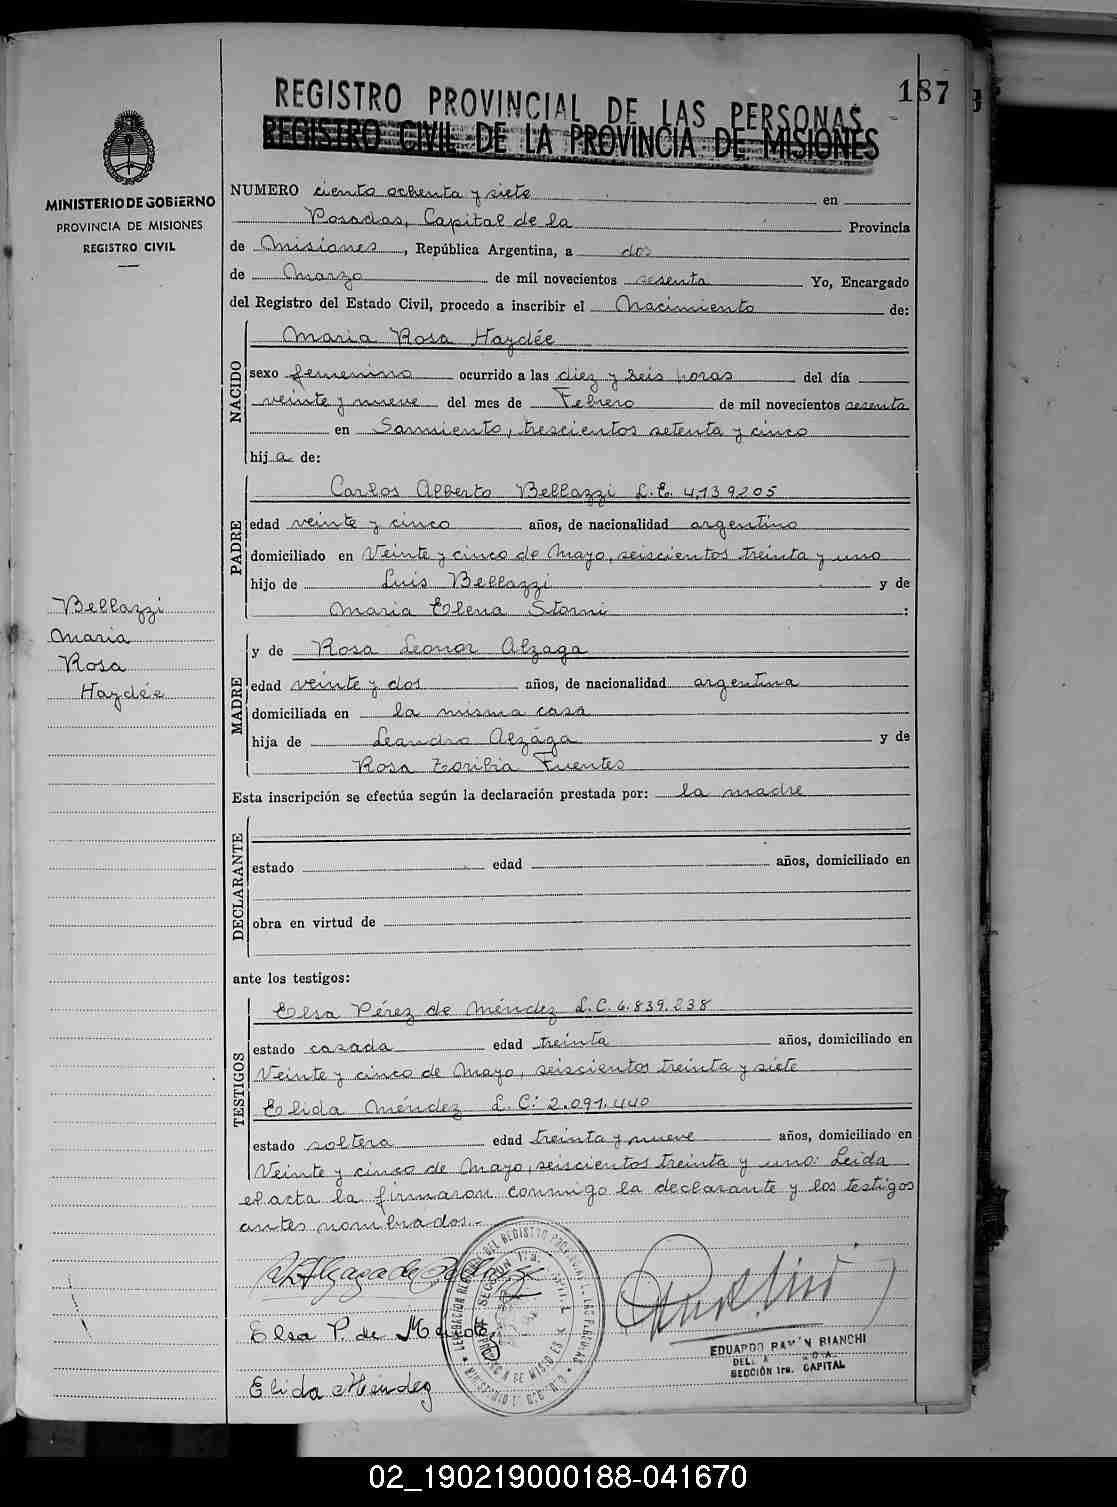 187
REGISTRO PROVINCIAL DE LAS PERSONAS
REGISTRO CIVIL DE LA PROVINCIA DE MISIONES
MINISTERIO DE GOBIERNO
PROVINCIA DE MISIONES
REGISTRO CIVIL
NUMERO ciento ochenta y siete en
Posadas, Capital de la Provincia
de Misiones, República Argentina, a dos
de Marzo de mil novecientos sesenta Yo, Encargado
del Registro del Estado Civil, procedo a inscribir el Nacimiento de:
NACIDO
Maria Rosa Haydée
sexo femenino ocurrido a las diez y seis horas del día
veinte y nueve del mes de Febrero de mil novecientos sesenta
en Sarmiento, trescientos setenta y cinco
hija de:
PADRE
Carlos Alberto Bellazzi L.E. 4.139205
edad veinte y cinco años, de nacionalidad argentino
domiciliado en Veinte y cinco de Mayo, seiscientos treinta y uno
hijo de Luis Bellazzi y de
Maria Elena Storni :
Bellazzi
Maria
Rosa
Haydée
MADRE
y de Rosa Leonor Alzaga
edad veinte y dos años, de nacionalidad argentina
domiciliada en la misma casa
hija de Leandro Alzága y de
Rosa Toribia Fuentes
Esta inscripción se efectúa según la declaración prestada por: la madre
DECLARANTE
estado edad años, domiciliado en
obra en virtud de
ante los testigos:
TESTIGOS
Elsa Pérez de Méndez L.C. 6.839.238
estado casada edad treinta años, domiciliado en
Veinte y cinco de Mayo, seiscientos treinta y siete
Elida Méndez L.C: 2.091.440
estado soltera edad treinta y nueve años, domiciliado en
Veinte y cinco de Mayo, seiscientos treinta y uno: Leida
el acta la firmaron conmigo la declarante y los testigos
antes nombrados.-
Elsa P. de Méndez
Elida Méndez
EDUARDO RAMON BIANCHI
SECCIÓN 1ra. CAPITAL
02_190219000188-041670